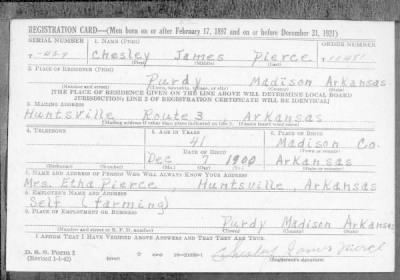 REGISTRATION CARD—(Men born on or after February 17, 1897 and on or before December 31, 1921)
SERIAL NUMBER 1. NAME (Print) ORDER NUMBER
Chesley James Pierce
2. PLACE OF RESIDENCE (Print)
Purdy Madison Arkansas
(Number and street) (Town, township, village, or city) (County) (State)
[THE PLACE OF RESIDENCE GIVEN ON THE LINE ABOVE WILL DETERMINE LOCAL BOARD
JURISDICTION; LINE 2 OF REGISTRATION CERTIFICATE WILL BE IDENTICAL]
3. MAILING ADDRESS
Huntsville Route 3 Arkansas
[Mailing address if other than place indicated on line 2. If same insert word same]
4. TELEPHONE 5. AGE IN YEARS 6. PLACE OF BIRTH
41 Madison Co.
DATE OF BIRTH (Town or county)
Dec 7 1900 Arkansas
(Exchange) (Number) (Mo.) (Day) (Yr.) (State or country)
7. NAME AND ADDRESS OF PERSON WHO WILL ALWAYS KNOW YOUR ADDRESS
Mrs. Etha Pierce Huntsville, Arkansas
8. EMPLOYER'S NAME AND ADDRESS
Self (farming)
9. PLACE OF EMPLOYMENT OR BUSINESS
Purdy Madison Arkansas
(Number and street or R. F. D. number) (Town) (County) (State)
I AFFIRM THAT I HAVE VERIFIED ABOVE ANSWERS AND THAT THEY ARE TRUE.
D. S. S. Form 1
(Revised 1-1-42) (over) Chesley James Pierce
(Registrant's signature)